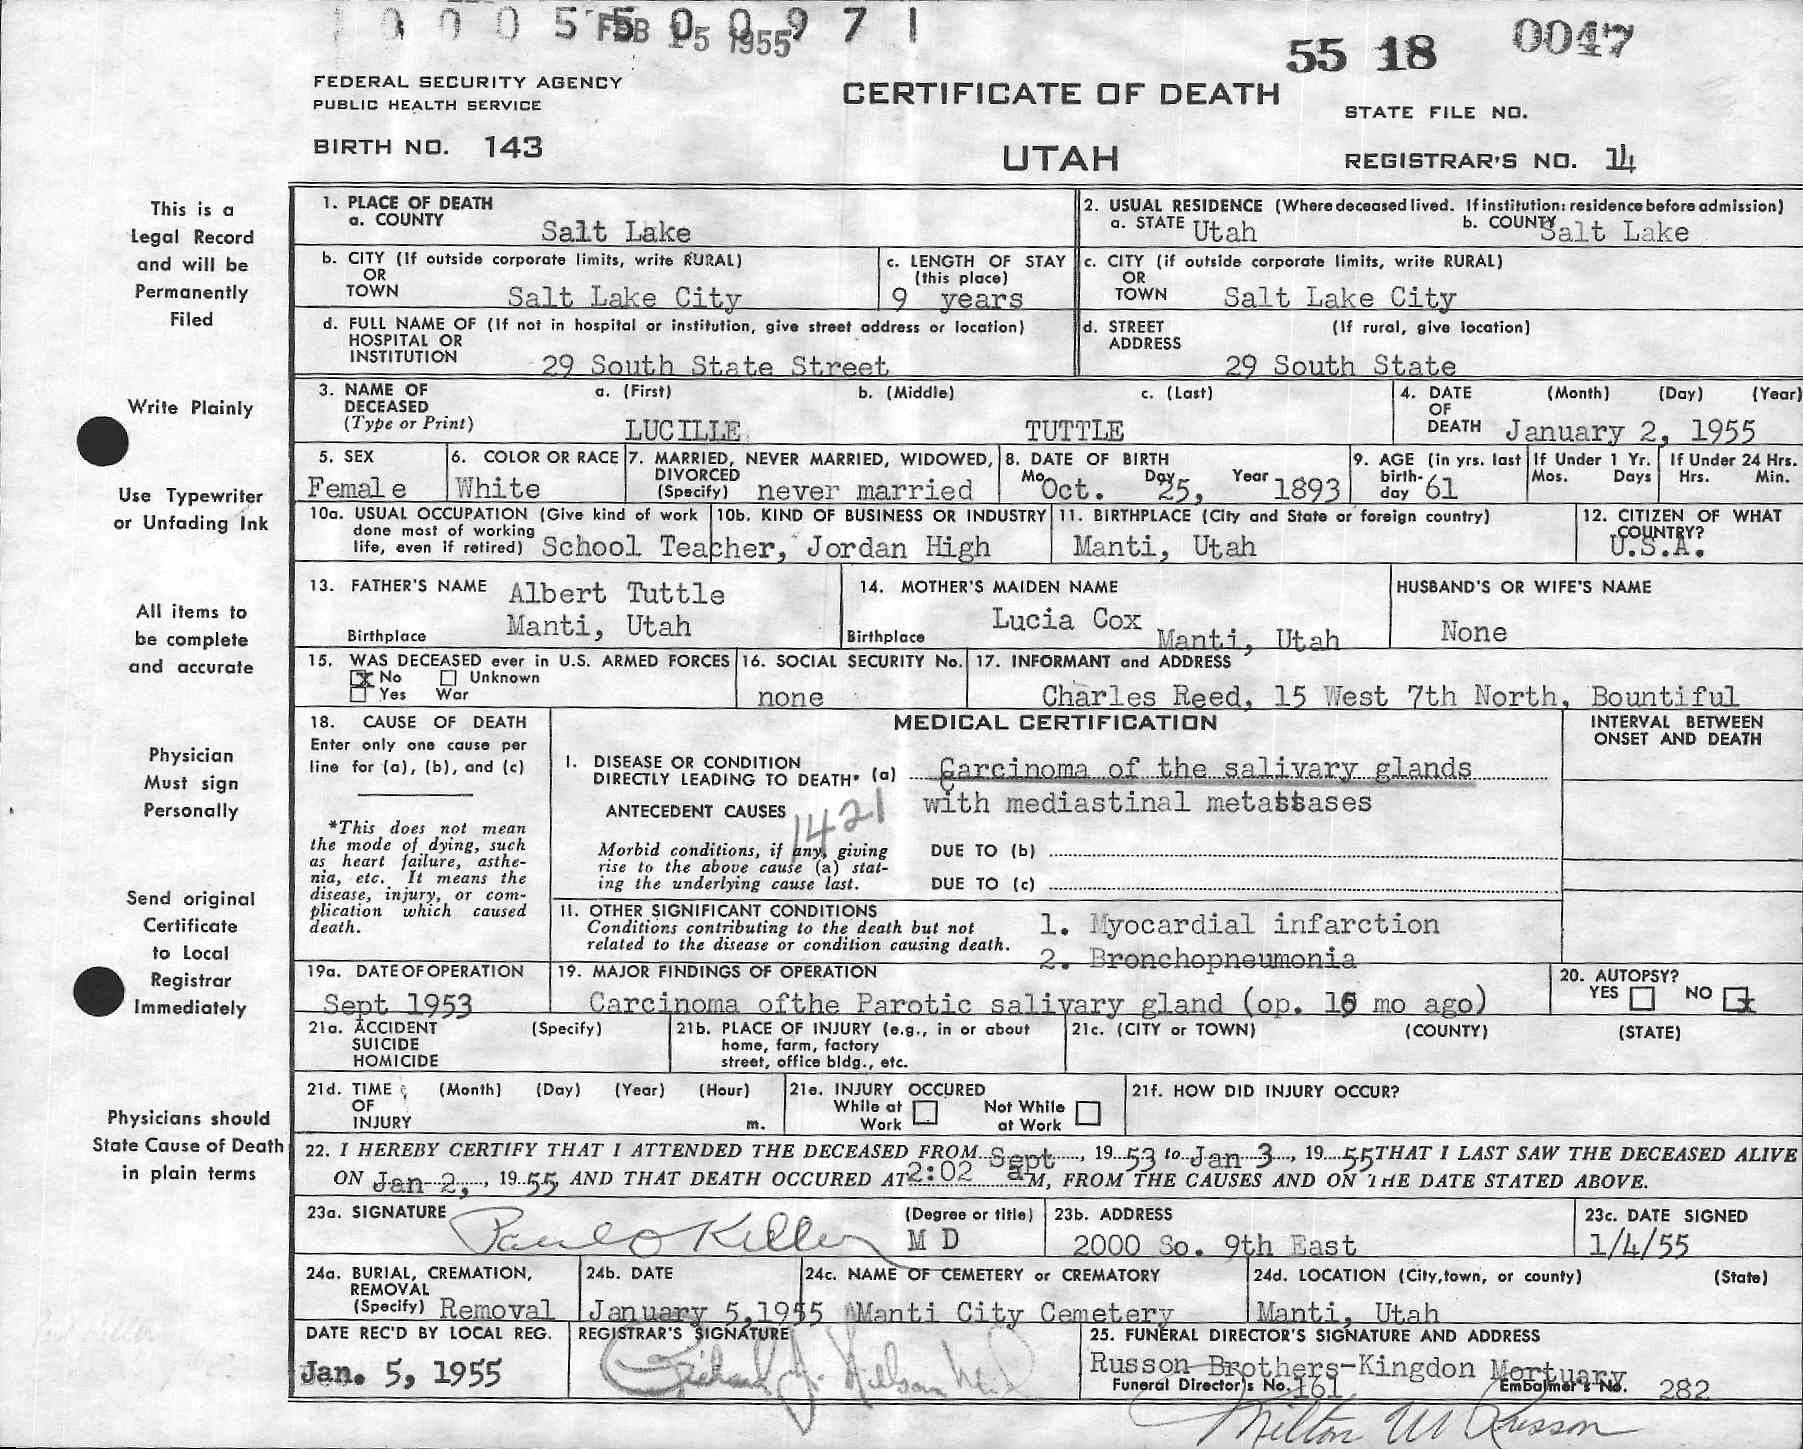 1 0 0 0 5 5 0 0 9 7 1
FEB 15 1955
55 18 0047
FEDERAL SECURITY AGENCY
PUBLIC HEALTH SERVICE
CERTIFICATE OF DEATH
STATE FILE NO.
BIRTH NO. 143
UTAH
REGISTRAR'S NO. 14
This is a
Legal Record
and will be
Permanently
Filed
Write Plainly
Use Typewriter
or Unfading Ink
All items to
be complete
and accurate
Physician
Must sign
Personally
Send original
Certificate
to Local
Registrar
Immediately
Physicians should
State Cause of Death
in plain terms
1. PLACE OF DEATH
a. COUNTY Salt Lake
2. USUAL RESIDENCE (Where deceased lived. If institution: residence before admission)
a. STATE Utah b. COUNTY Salt Lake
b. CITY (If outside corporate limits, write RURAL)
OR
TOWN Salt Lake City
c. LENGTH OF STAY
(this place)
9 years
c. CITY (if outside corporate limits, write RURAL)
OR
TOWN Salt Lake City
d. FULL NAME OF (If not in hospital or institution, give street address or location)
HOSPITAL OR
INSTITUTION 29 South State Street
d. STREET (If rural, give location)
ADDRESS
29 South State
3. NAME OF a. (First) b. (Middle) c. (Last)
DECEASED
(Type or Print) LUCILLE TUTTLE
4. DATE (Month) (Day) (Year)
OF
DEATH January 2, 1955
5. SEX
Female
6. COLOR OR RACE
White
7. MARRIED, NEVER MARRIED, WIDOWED,
DIVORCED
(Specify) never married
8. DATE OF BIRTH
Mo. Oct. Day 25, Year 1893
9. AGE (in yrs. last
birth-
day 61
If Under 1 Yr.
Mos. Days
If Under 24 Hrs.
Hrs. Min.
10a. USUAL OCCUPATION (Give kind of work
done most of working
life, even if retired) School Teacher, Jordan High
10b. KIND OF BUSINESS OR INDUSTRY
11. BIRTHPLACE (City and State or foreign country)
Manti, Utah
12. CITIZEN OF WHAT
COUNTRY?
U.S.A.
13. FATHER'S NAME Albert Tuttle
Birthplace Manti, Utah
14. MOTHER'S MAIDEN NAME
Lucia Cox
Birthplace Manti, Utah
HUSBAND'S OR WIFE'S NAME
None
15. WAS DECEASED ever in U.S. ARMED FORCES
x No Unknown
Yes War
16. SOCIAL SECURITY No.
none
17. INFORMANT and ADDRESS
Charles Reed, 15 West 7th North, Bountiful
18. CAUSE OF DEATH
Enter only one cause per
line for (a), (b), and (c)
*This does not mean
the mode of dying, such
as heart failure, asthe-
nia, etc. It means the
disease, injury, or com-
plication which caused
death.
MEDICAL CERTIFICATION
INTERVAL BETWEEN
ONSET AND DEATH
I. DISEASE OR CONDITION
DIRECTLY LEADING TO DEATH* (a) Carcinoma of the salivary glands
with mediastinal metastases
ANTECEDENT CAUSES
1421
Morbid conditions, if any, giving
rise to the above cause (a) stat-
ing the underlying cause last.
DUE TO (b)
DUE TO (c)
II. OTHER SIGNIFICANT CONDITIONS
Conditions contributing to the death but not
related to the disease or condition causing death.
1. Myocardial infarction
2. Bronchopneumonia
19a. DATE OF OPERATION
Sept 1953
19. MAJOR FINDINGS OF OPERATION
Carcinoma ofthe Parotic salivary gland (op. 16 mo ago)
20. AUTOPSY?
YES NO x
21a. ACCIDENT (Specify)
SUICIDE
HOMICIDE
21b. PLACE OF INJURY (e.g., in or about
home, farm, factory
street, office bldg., etc.
21c. (CITY or TOWN) (COUNTY) (STATE)
21d. TIME (Month) (Day) (Year) (Hour)
OF
INJURY m.
21e. INJURY OCCURED
While at Work Not While at Work
21f. HOW DID INJURY OCCUR?
22. I HEREBY CERTIFY THAT I ATTENDED THE DECEASED FROM Sept, 19 53 to Jan 3, 19 55 THAT I LAST SAW THE DECEASED ALIVE
ON Jan 2, 19 55 AND THAT DEATH OCCURED AT 2:02 a M, FROM THE CAUSES AND ON THE DATE STATED ABOVE.
23a. SIGNATURE Paul O Keller (Degree or title) M D
23b. ADDRESS
2000 So. 9th East
23c. DATE SIGNED
1/4/55
24a. BURIAL, CREMATION,
REMOVAL
(Specify) Removal
24b. DATE
January 5,1955
24c. NAME OF CEMETERY or CREMATORY
Manti City Cemetery
24d. LOCATION (City,town, or county) (State)
Manti, Utah
DATE REC'D BY LOCAL REG.
Jan. 5, 1955
REGISTRAR'S SIGNATURE
25. FUNERAL DIRECTOR'S SIGNATURE AND ADDRESS
Russon Brothers-Kingdon Mortuary
Funeral Director's No. 161 Embalmer's No. 282
Milton W Russon